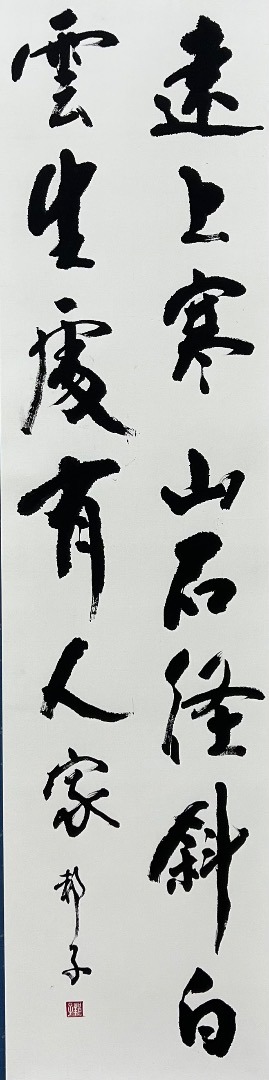 遠上寒山石径斜白
雲生處有人家